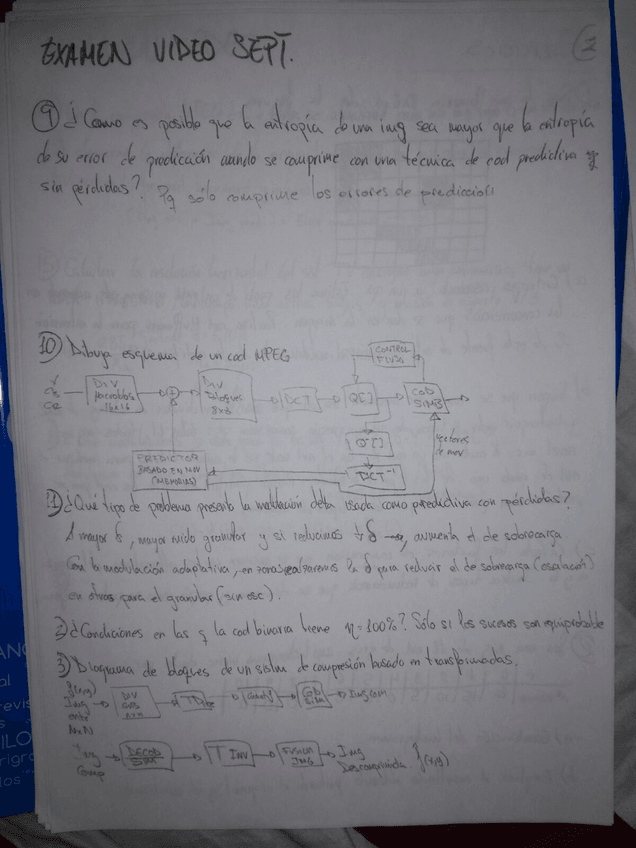 EXAMEN VIDEO SEPT.
2
9) ¿Como es posible que la entropía de una img sea mayor que la entropía
de su error de predicción cuando se comprime con una técnica de cod predictiva y
sin pérdidas? Pq sólo comprime los errores de predicción
10) Dibuja esquema de un cod MPEG
CONTROL
FLUJO
Y
CB
CR
DIV
Macrobloq
16x16
DIV
Bloques
8x8
DCT
Q[]
COD
SIMB
Q⁻¹[]
Vectores
de mov
PREDICTOR
BASADO EN MOV
(MEMORIAS)
DCT⁻¹
1) ¿Qué tipo de problema presenta la modulación delta usada como predictiva con pérdidas?
A mayor δ, mayor ruido granular y si reducimos δ → aumenta el de sobrecarga
Con la modulación adaptativa, en zonas δ para reducir el de sobrecarga (escalación)
en otras para el granular (sin esc).
2) ¿Condiciones en las q la cod binaria tiene η=100%? Sólo si los sucesos son equiprobable
3) Diagrama de bloques de un sistm de compresión basado en transformadas.
f(x,y)
Img
ent
NxN
DIV
nxn
Cuantif
COD
SIM
Img com.
Img
Comp
DECOD
SIMB
T INV
FUSION
IMG
Img
Descomprimida f̂(x,y)
AN
al
revis
s
ILO
rigro
los